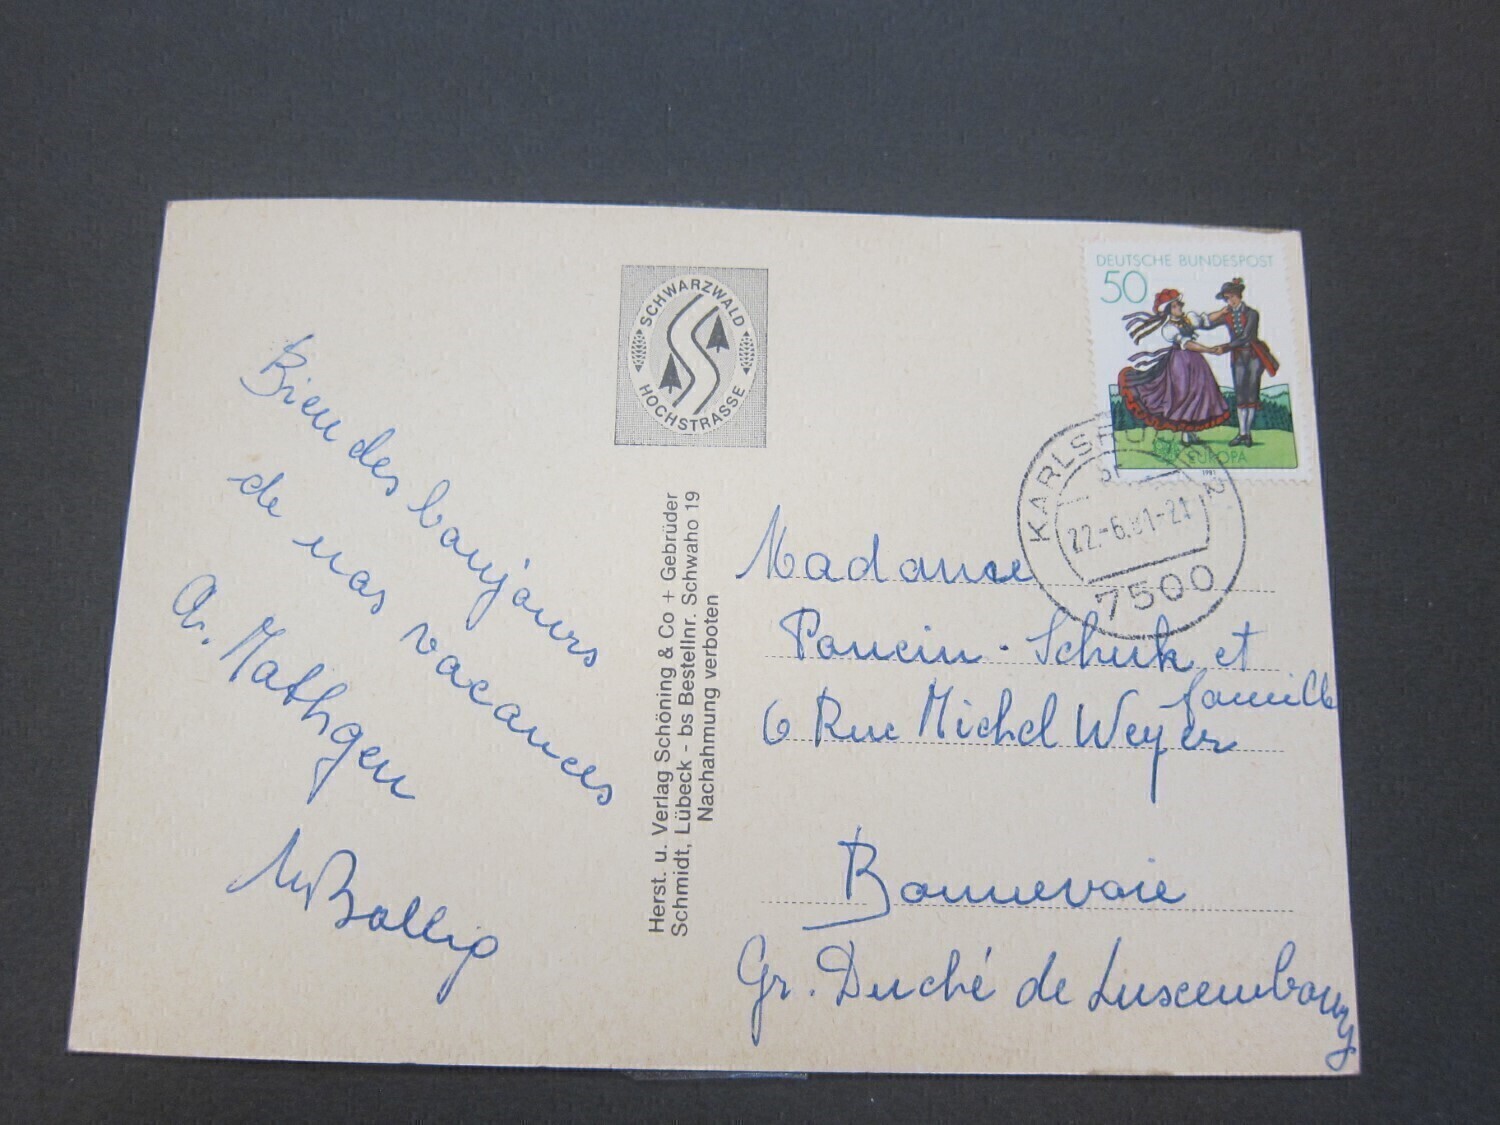 Bien des bonjours
de nos vacances
A. Mathgen
M Bollig
SCHWARZWALD
HOCHSTRASSE
Herst. u. Verlag Schöning & Co + Gebrüder
Schmidt, Lübeck - bs Bestellnr. Schwaho 19
Nachahmung verboten
DEUTSCHE BUNDESPOST
50
EUROPA
1981
KARLSRUHE 2
22-6.81-21
7500
Madame
Poncin-Schuk et
famille
6 Rue Michel Weyer
Bonnevoie
Gr. Duché de Luxembourg